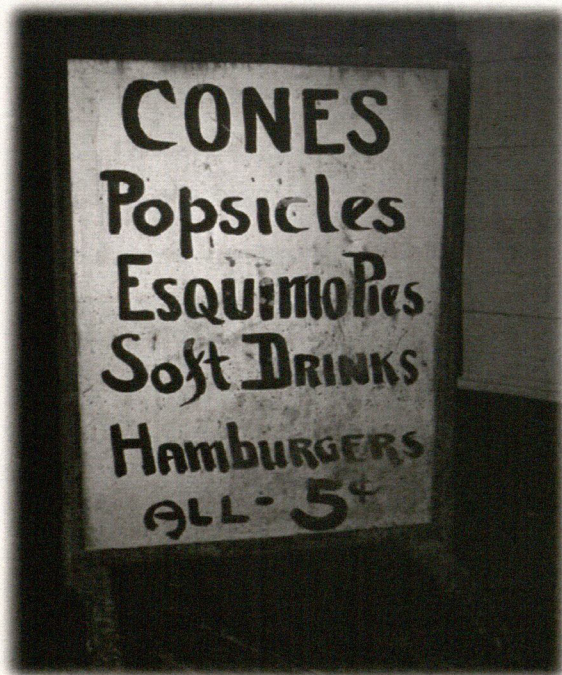 CONES
Popsicles
Esquimo Pies
Soft Drinks
Hamburgers
All - 5¢